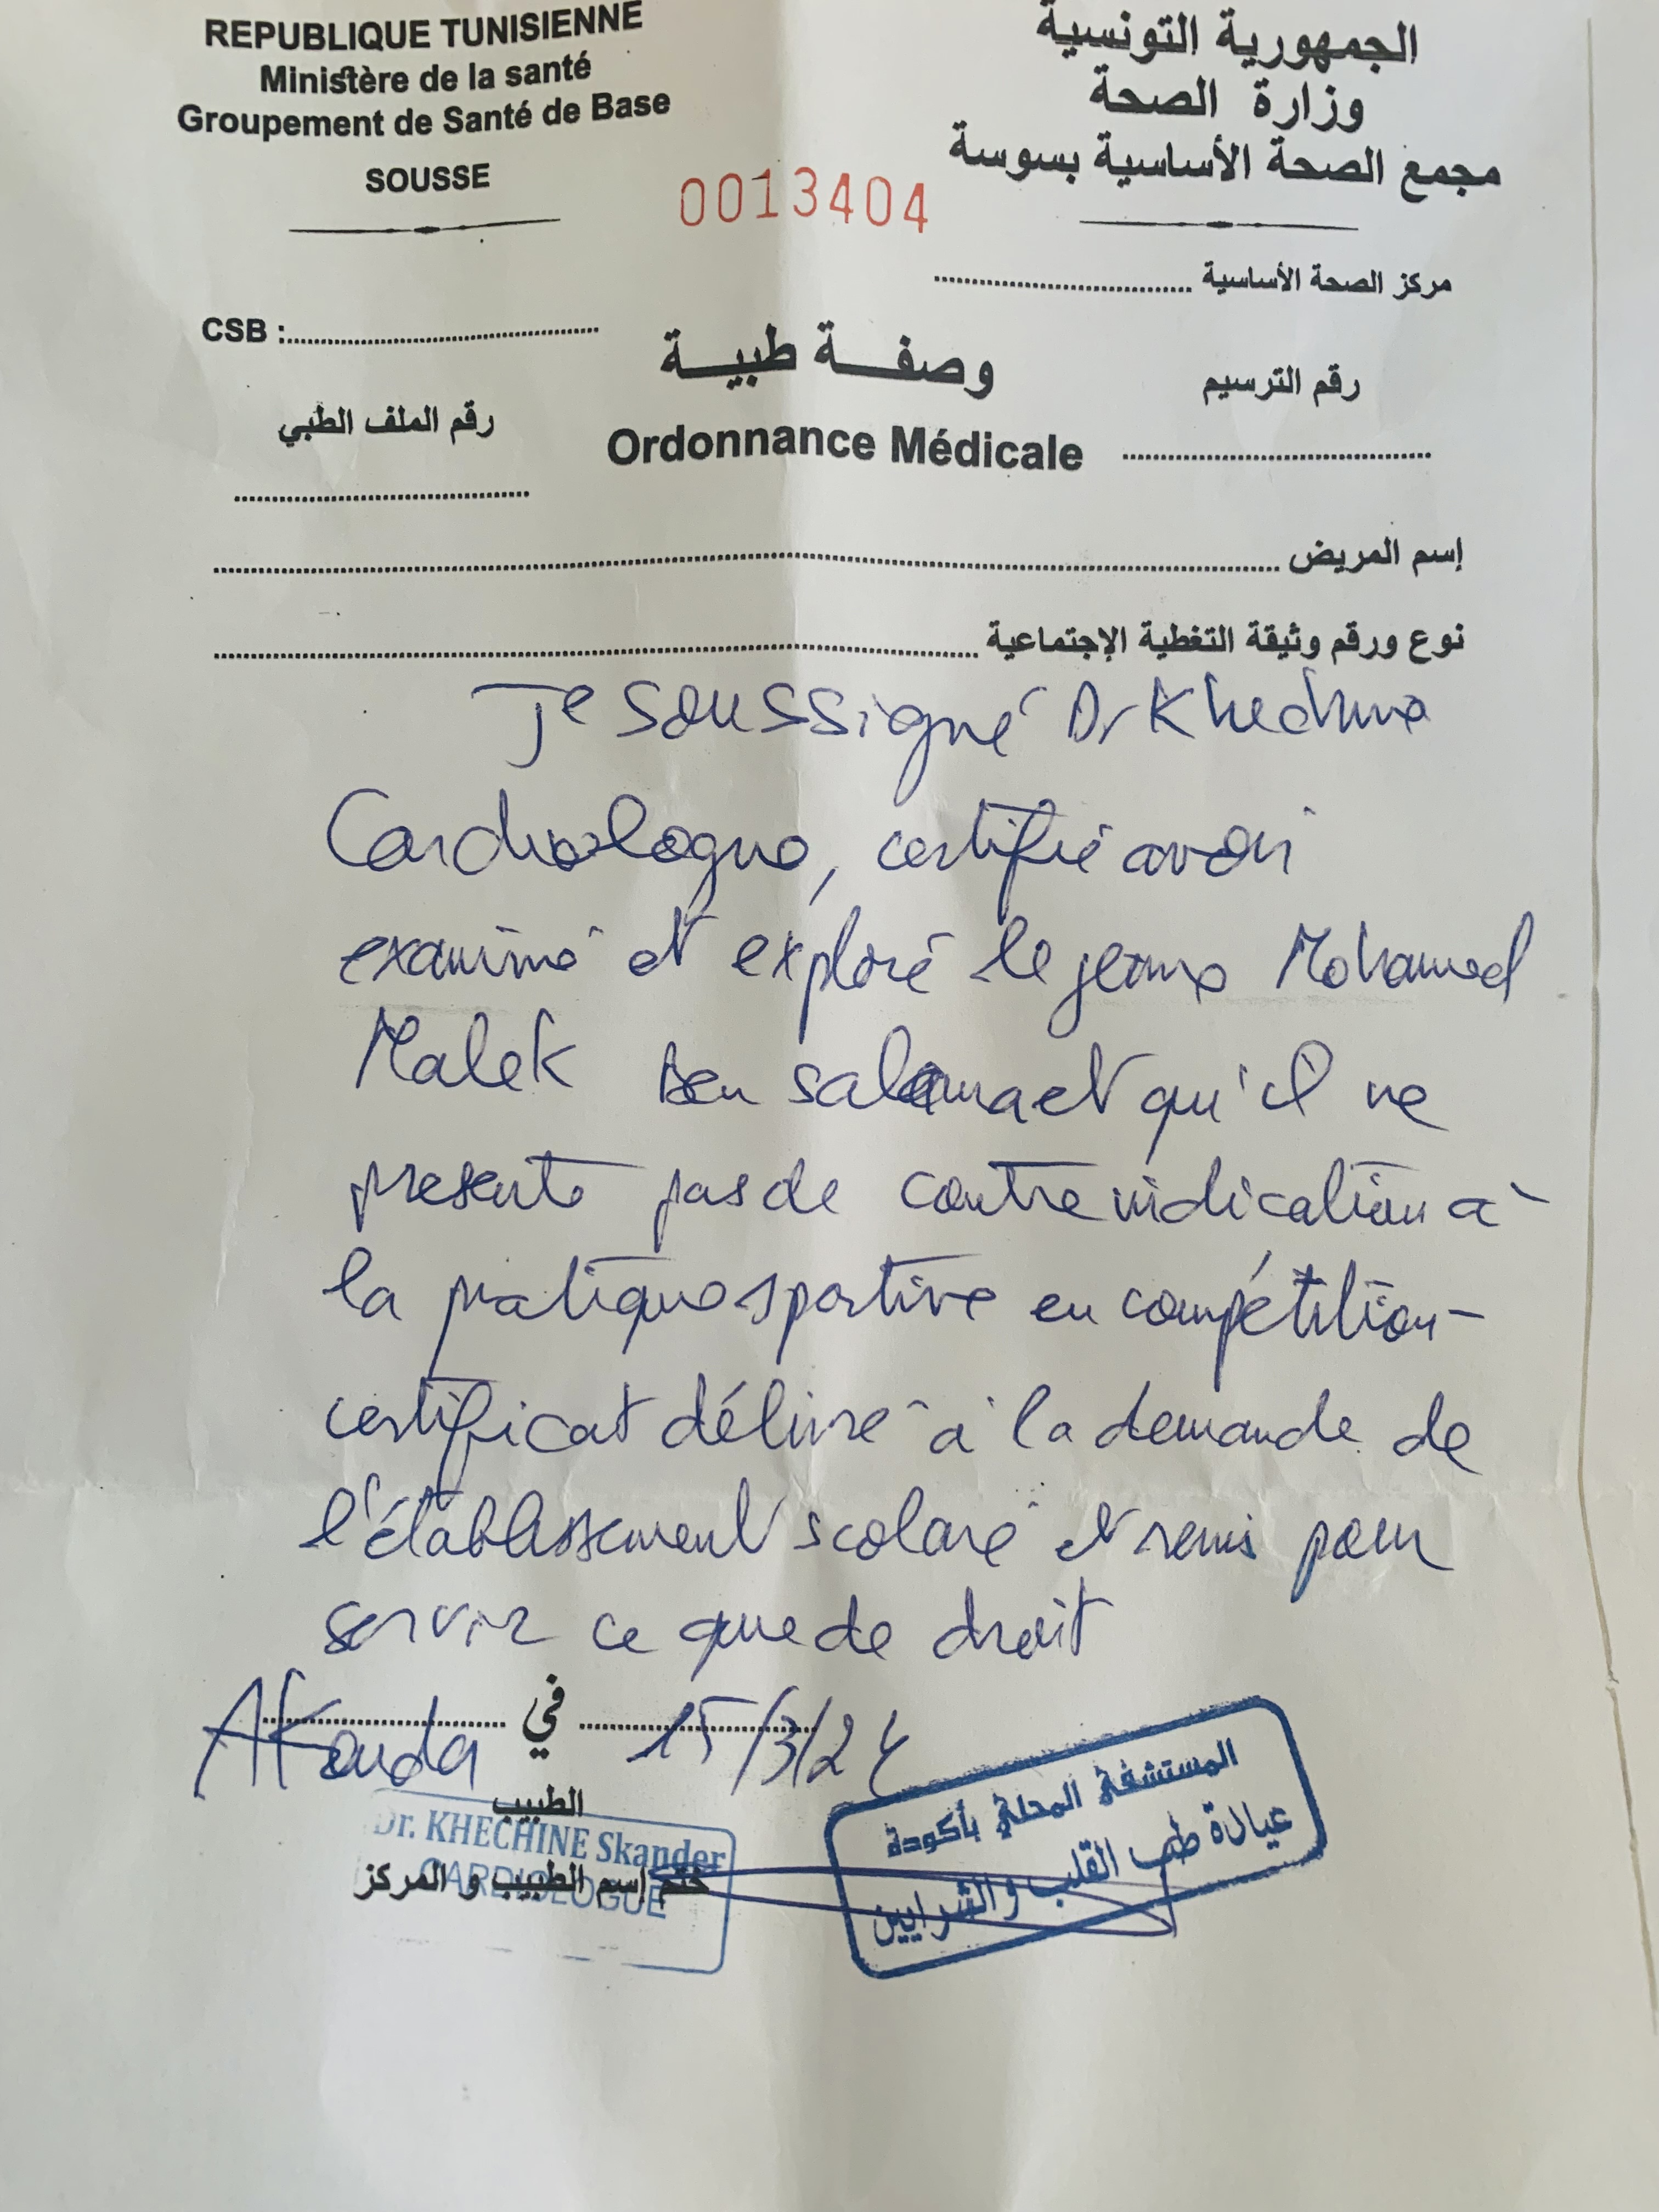 REPUBLIQUE TUNISIENNE
Ministère de la santé
Groupement de Santé de Base
SOUSSE
الجمهورية التونسية
وزارة الصحة
مجمع الصحة الأساسية بسوسة
0013404
مركز الصحة الأساسية
CSB :
وصفة طبية
رقم الترسيم
رقم الملف الطبي
Ordonnance Médicale
إسم المريض
نوع ورقم وثيقة التغطية الإجتماعية
Je soussigné Dr Khechine
Cardiologue, certifié avoir
examiné et exploré le jeune Mohamed
Malek Ben salama et qu'il ne
presente pas de contre indication à
la pratique sportive en compétition -
certificat délivré à la demande de
l'établissement scolaire et remis pour
servir ce que de droit
Akouda في 15/3/24
الطبيب
Dr. KHECHINE Skander
CARDIOLOGUE
ختم إسم الطبيب و المركز
المستشفى المحلي بأكودة
عيادة طب القلب والشرايين